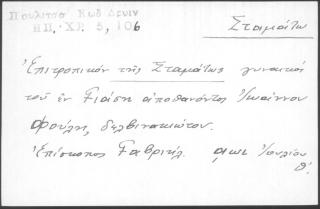 Πουλίτσα Κωδ Δρυιν
ΗΠ. ΧΡ 5, 106
Σταμάτω
Ἐπιτροπικόν τῆς Σταμάτως γυναικός
τοῦ ἐν Γιάσῃ ἀποθανόντος Ἰωάννου
Φούλη, δελβινακιώτου.
Ἐπίσκοπος Γαβριήλ. αωι Ἰουλίου
θ'.